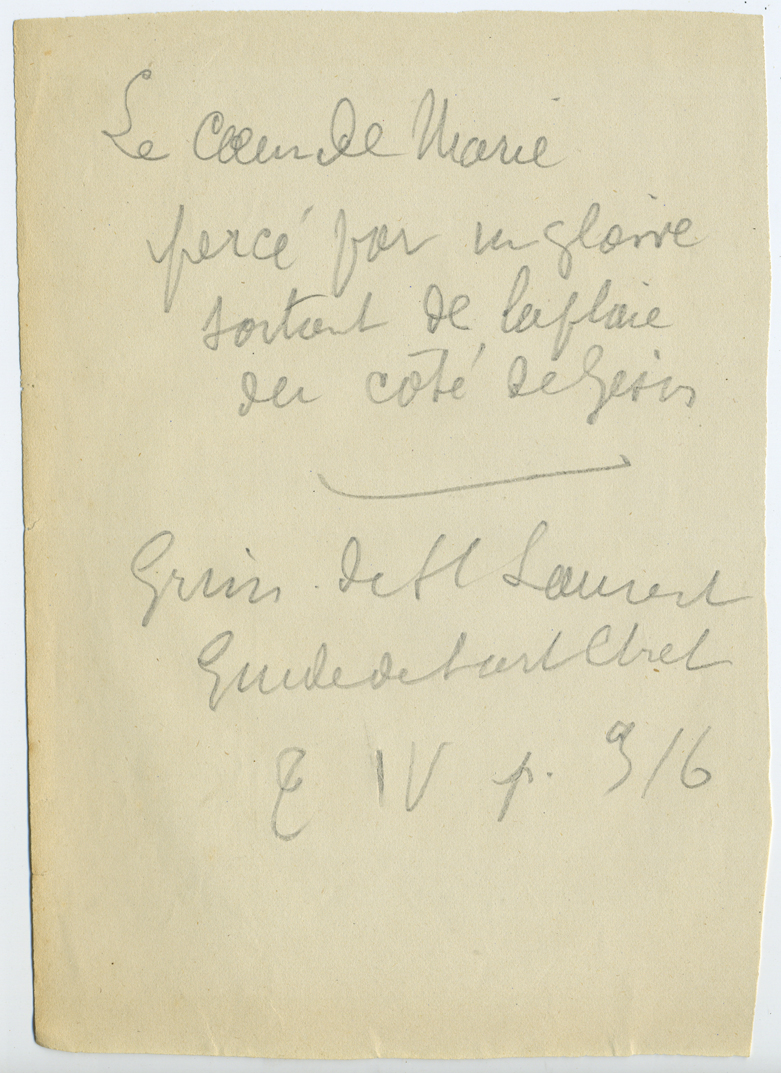 Le Cœur de Marie
percé par un glaive
sortant de la plaie
du côté de Jésus
Grim. de St Laurent
Guide de l'art Chret
T IV p. 316